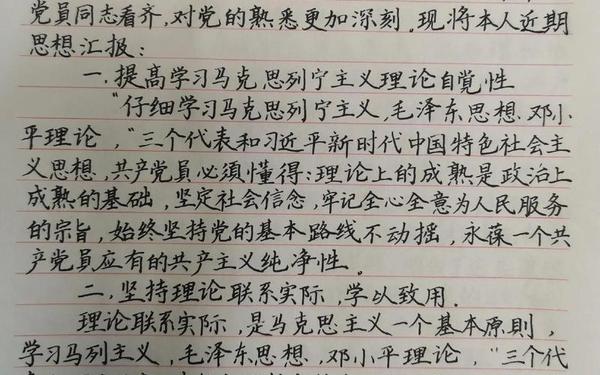 党员同志看齐,对党的熟悉更加深刻.现将本人近期
思想汇报:
一.提高学习马克思列宁主义理论自觉性
"仔细学习马克思列宁主义,毛泽东思想.邓小
平理论,"三个代表和习近平新时代中国特色社会主
义思想,共产党员必须懂得:理论上的成熟是政治上
成熟的基础,坚定社会信念,牢记全心全意为人民服务
的宗旨,始终坚持党的基本路线不动摇,永葆一个共
产党员应有的共产主义纯净性。
二.坚持理论联系实际,学以致用.
理论联系实际,是马克思主义一个基本原则,
学习马列主义,毛泽东思想.邓小平理论,"三个代